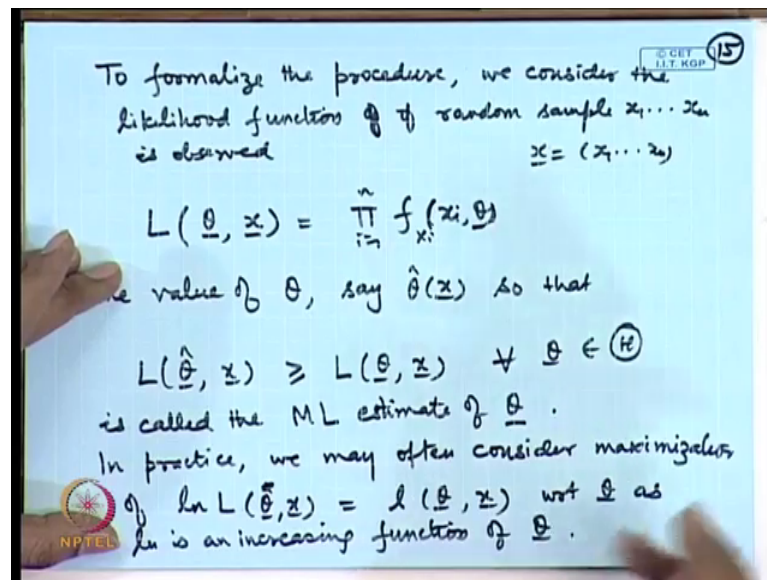 © CET
I.I.T. KGP
15
To formalize the procedure, we consider the
likelihood function of random sample x₁ ... xₙ
is observed x = (x₁ ... xₙ)
L(θ, x) = ∏ᵢ₌₁ⁿ f_xᵢ(xᵢ, θ)
value of θ, say θ̂(x) so that
L(θ̂, x) ≥ L(θ, x) ∀ θ ∈ Ⓗ
is called the ML estimate of θ.
In practice, we may often consider maximization
of ln L(θ, x) = l(θ, x) wrt θ as
ln is an increasing function of θ.
NPTEL